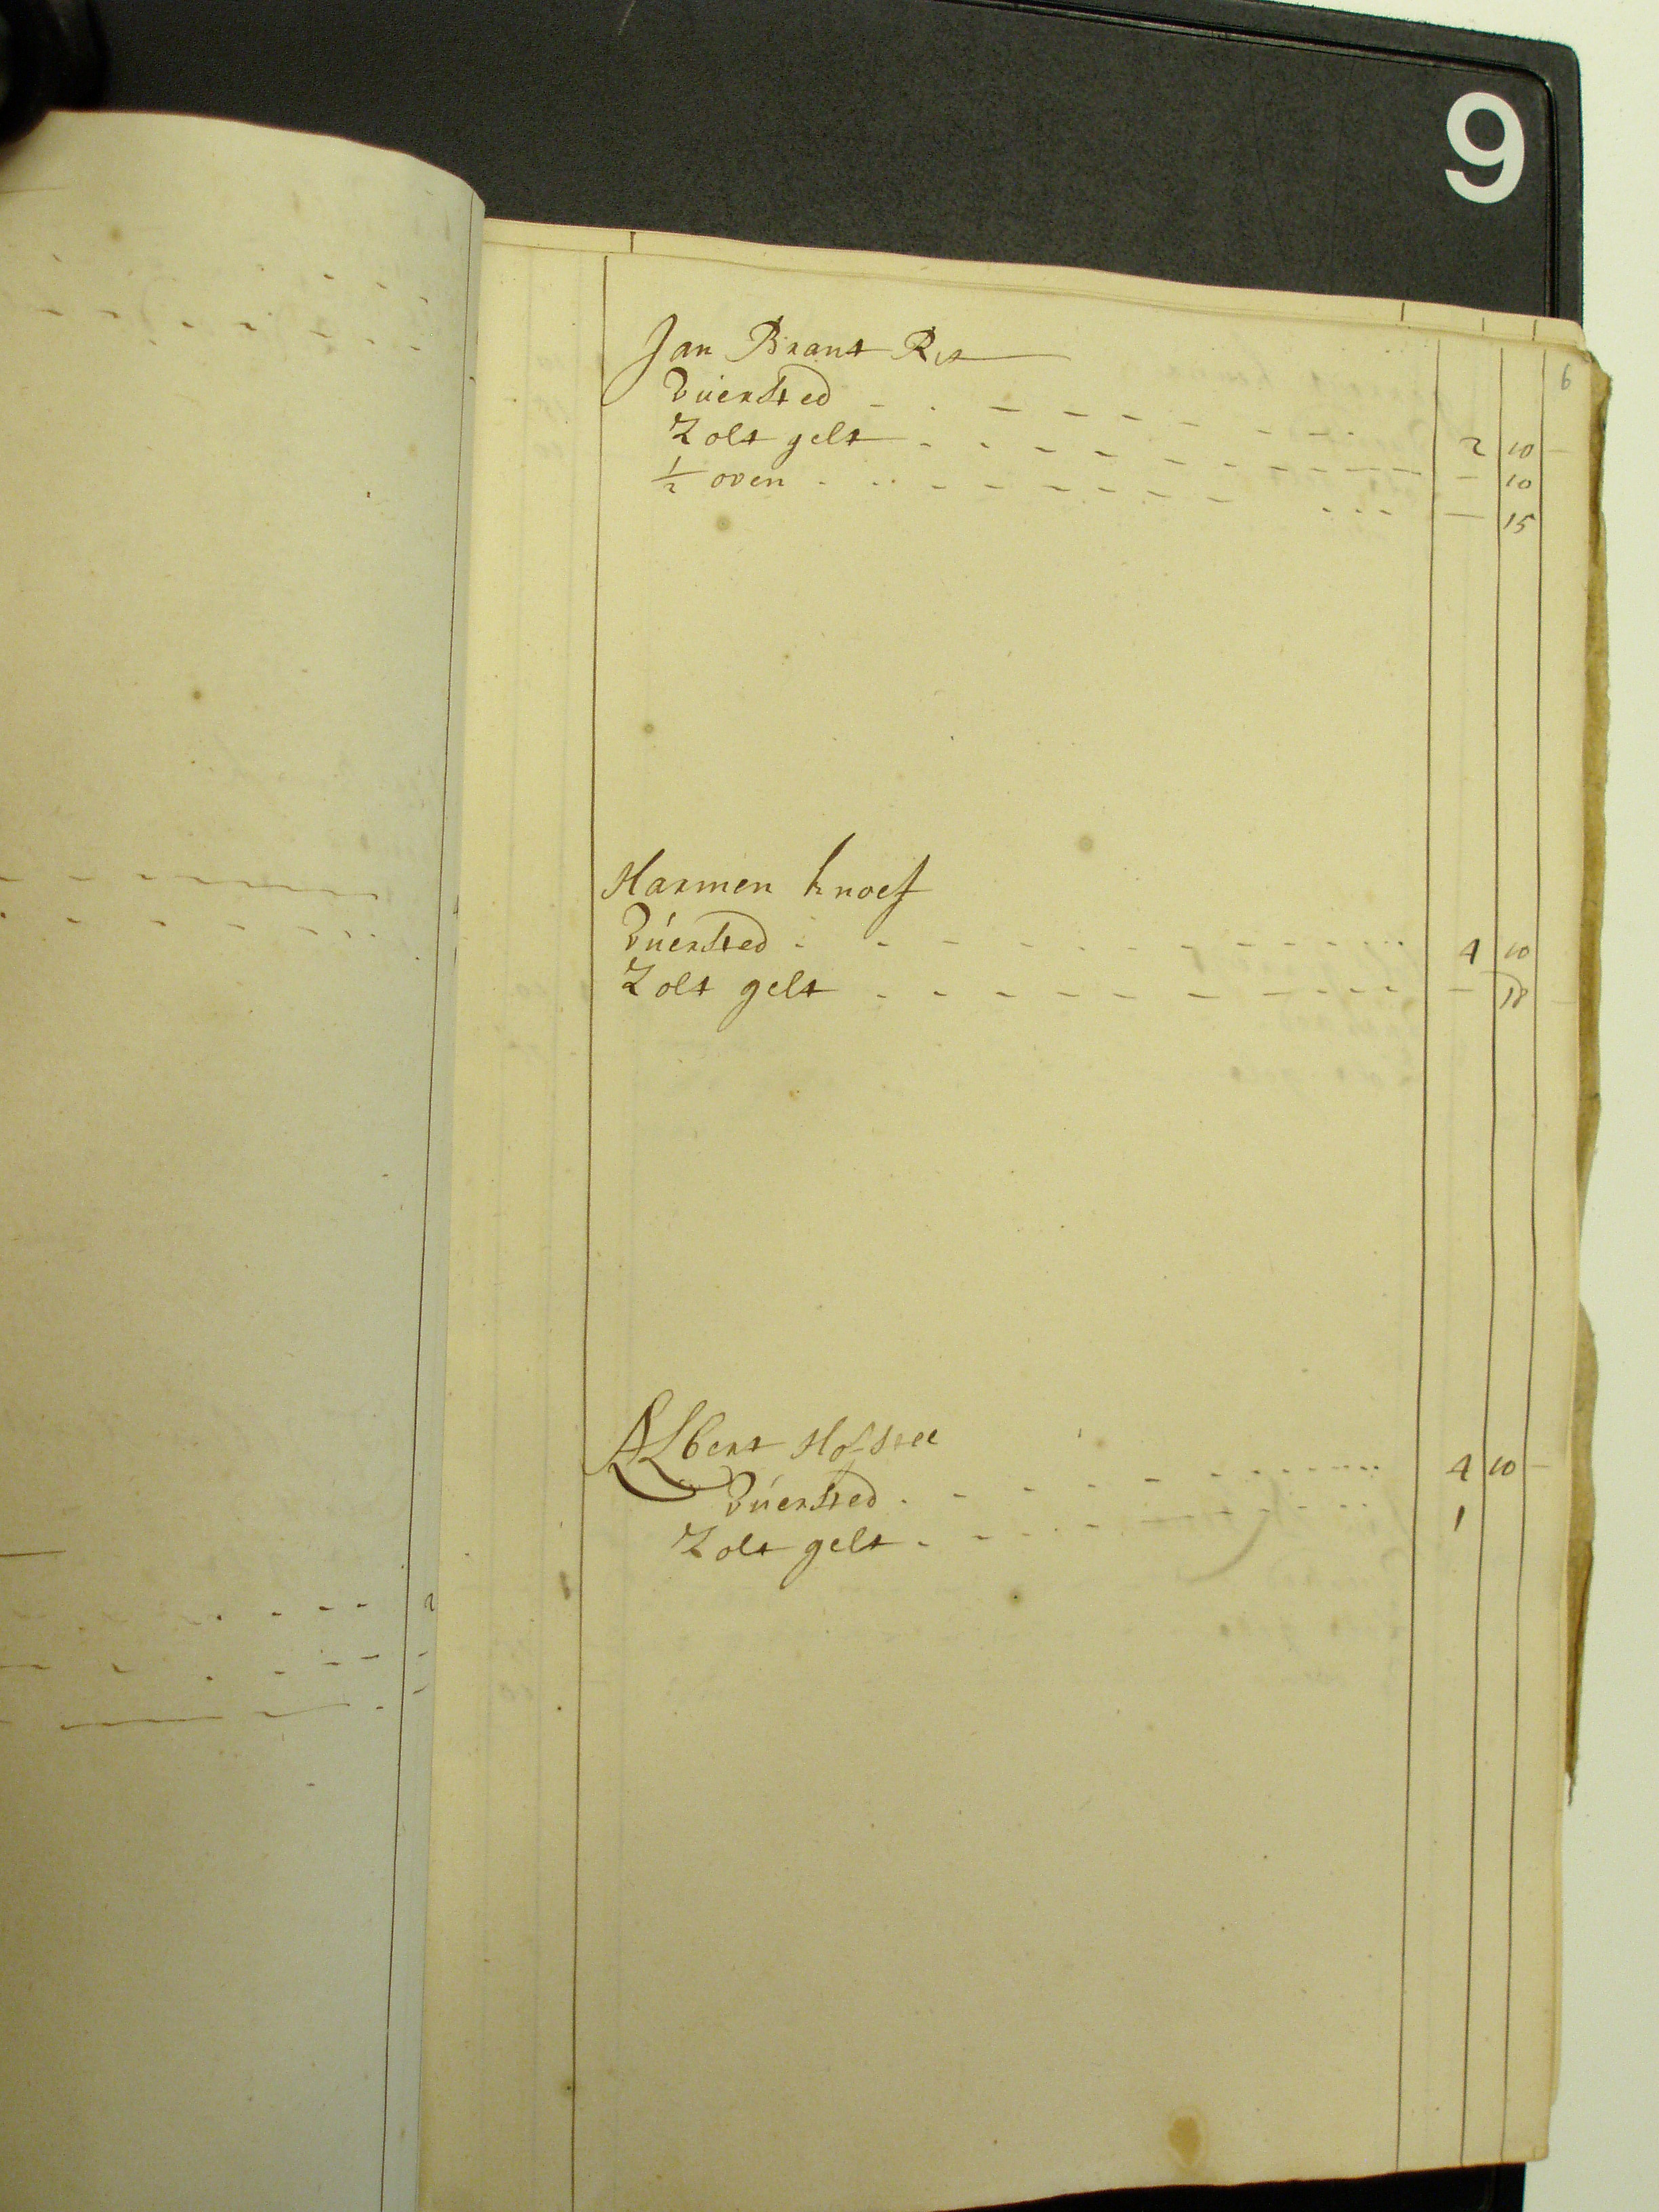 9
6
Jan Brant Rst
Vuersted - . - - - - - - - 2 10 -
Zolt gelt - - - - - - - - - - 10
1/2 oven - - - - - - - - - - 15
Harmen knoef
Vuersted - - - - - - - - - 4 10
Zolt gelt - - - - - - - - - - 18
Albert Hofstee
Vuersted - - - - - - - - 4 10 -
Zolt gelt - - - - - - - - 1